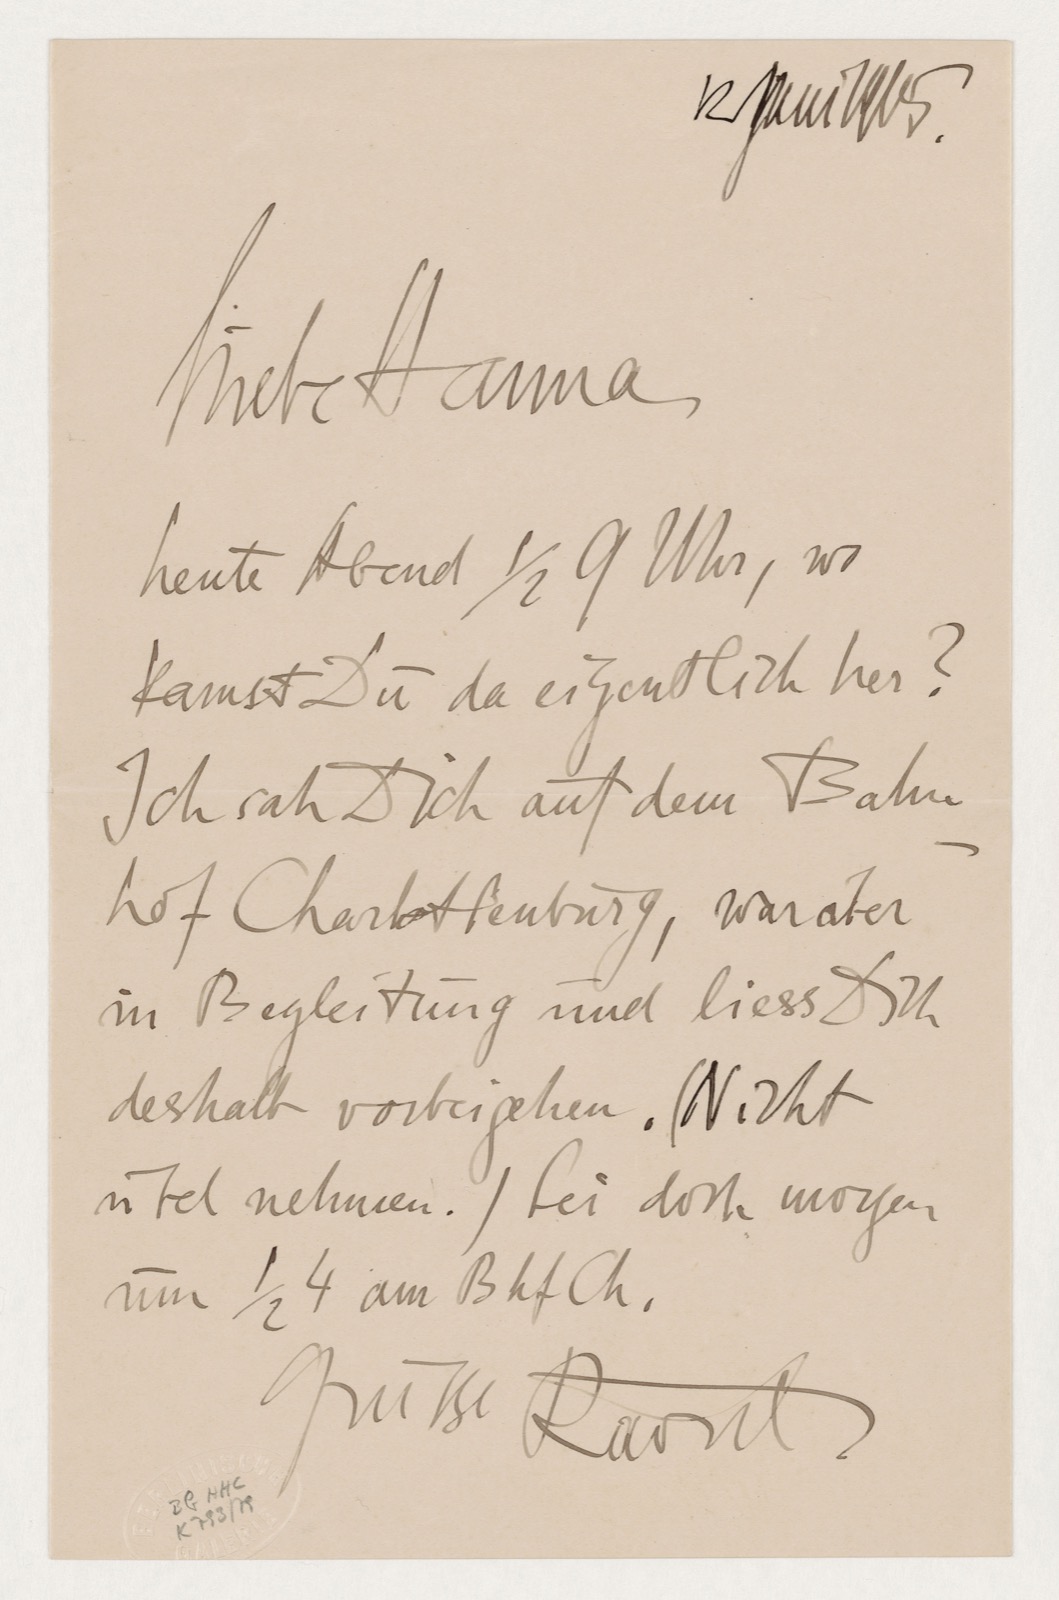 12 Juni 1915.
Liebe Hanna,
heute Abend ½ 9 Uhr, wo
kamst Du da eigentlich her?
Ich sah Dich auf dem Bahn
hof Charlottenburg, war aber
in Begleitung und liess Dich
deshalb vorbeigehen. (Nicht
übel nehmen.) Sei doch morgen
um ½ 4 am Bhf Ch.
Grüsse Raoul
BG HHC
K 793/79